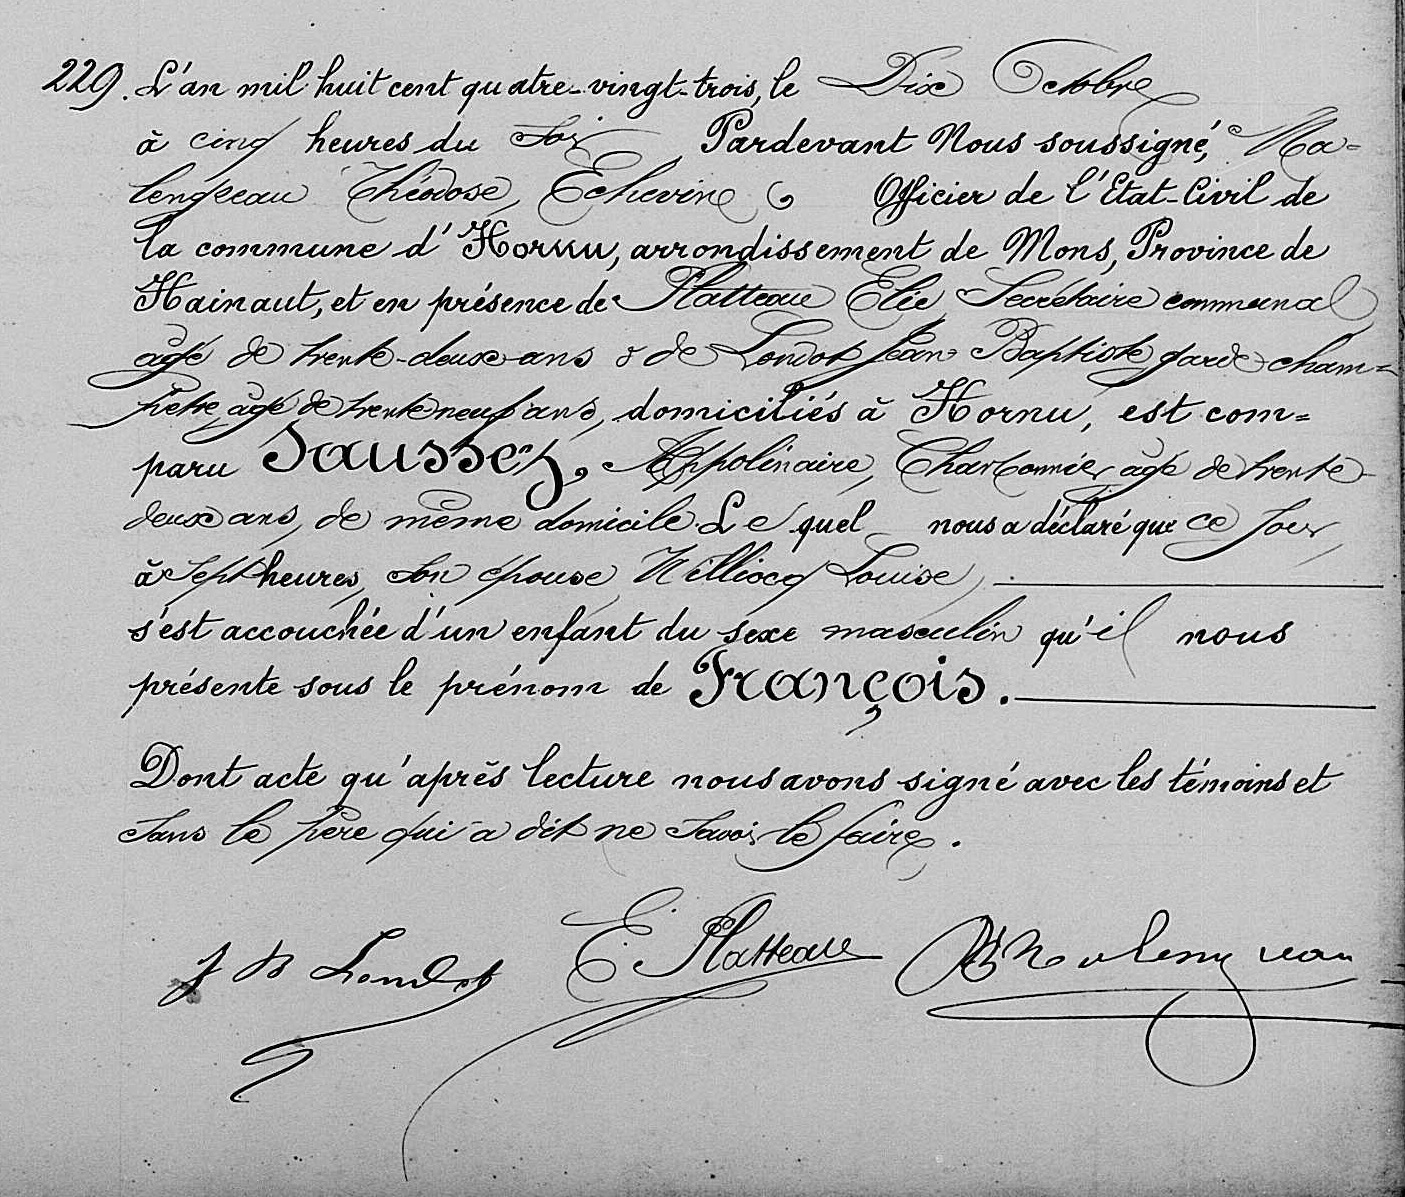 229. L'an mil huit cent quatre-vingt-trois, le Dix Octobre
à cinq heures du soir Pardevant Nous soussigné, Ma-
lengreau Théodose, Echevin Officier de l'Etat-Civil de
la commune d'Hornu, arrondissement de Mons, Province de
Hainaut, et en présence de Platteau Elie, Secrétaire communal
âgé de trente-deux ans & de Londot Jean Baptiste, garde-cham=
pêtre âgé de trente neuf ans, domiciliés à Hornu, est com=
paru Saussez, Appolinaire, Charbonnier âgé de trente-
deux ans, de même domicile. Le quel nous a déclaré que ce jour
à sept heures, son épouse, Williocq Louise,
s'est accouchée d'un enfant du sexe masculin qu'il nous
présente sous le prénom de François.
Dont acte qu'après lecture nous avons signé avec les témoins et
sans le père qui a dit ne savoir le faire.
J B Londot E. Platteau Th Malengreau